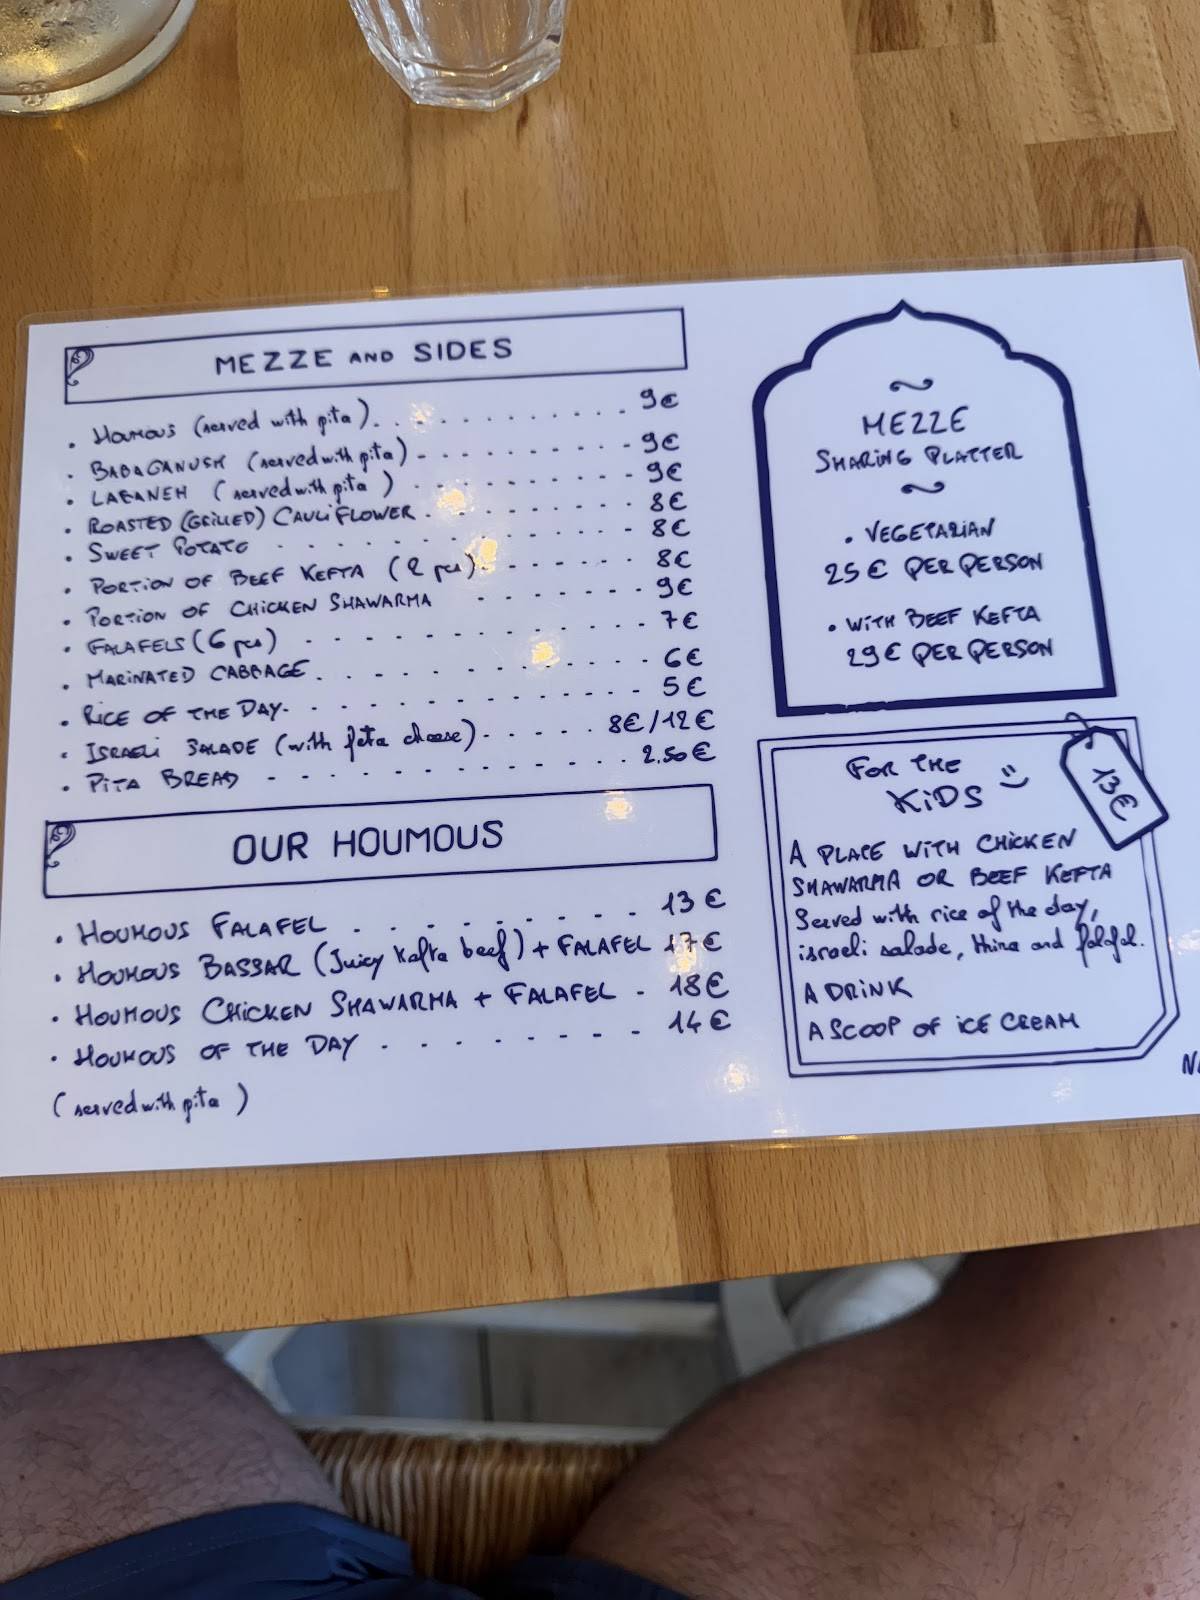 MEZZE AND SIDES
• HOUMOUS (served with pita). . . . . . . . . . . . 9€
• BABAGANUSH (served with pita) - - - - - - - - - 9€
• LABANEH (served with pita) . . . . . . . . . 9€
• ROASTED (GRILLED) CAULIFLOWER . . . . . . . . . 8€
• SWEET POTATO . . . . . . . . . . . . . 8€
• PORTION OF BEEF KEFTA (2 pcs) . . . . . . 8€
• PORTION OF CHICKEN SHAWARMA . . . . . . . 9€
• FALAFELS (6 pcs) . . . . . . . . . . . . . 7€
• MARINATED CABBAGE . . . . . . . . . . . . . 6€
• RICE OF THE DAY. . . . . . . . . . . . . 5€
• ISRAELI SALADE (with feta cheese) . . . . . . 8€/12€
• PITA BREAD - - - - - - - - - - - - - 2.50€
OUR HOUMOUS
• HOUMOUS FALAFEL . . . . . . . . . 13€
• HOUMOUS BASSAR (Juicy kafta beef) + FALAFEL 17€
• HOUMOUS CHICKEN SHAWARMA + FALAFEL - 18€
• HOUMOUS OF THE DAY . . . . . . . . 14€
(served with pita)
MEZZE
SHARING PLATTER
• VEGETARIAN
25€ PER PERSON
• WITH BEEF KEFTA
29€ PER PERSON
FOR THE
KIDS
13€
A PLATE WITH CHICKEN
SHAWARMA OR BEEF KEFTA
Served with rice of the day,
israeli salade, thina and falafel.
A DRINK
A SCOOP OF ICE CREAM